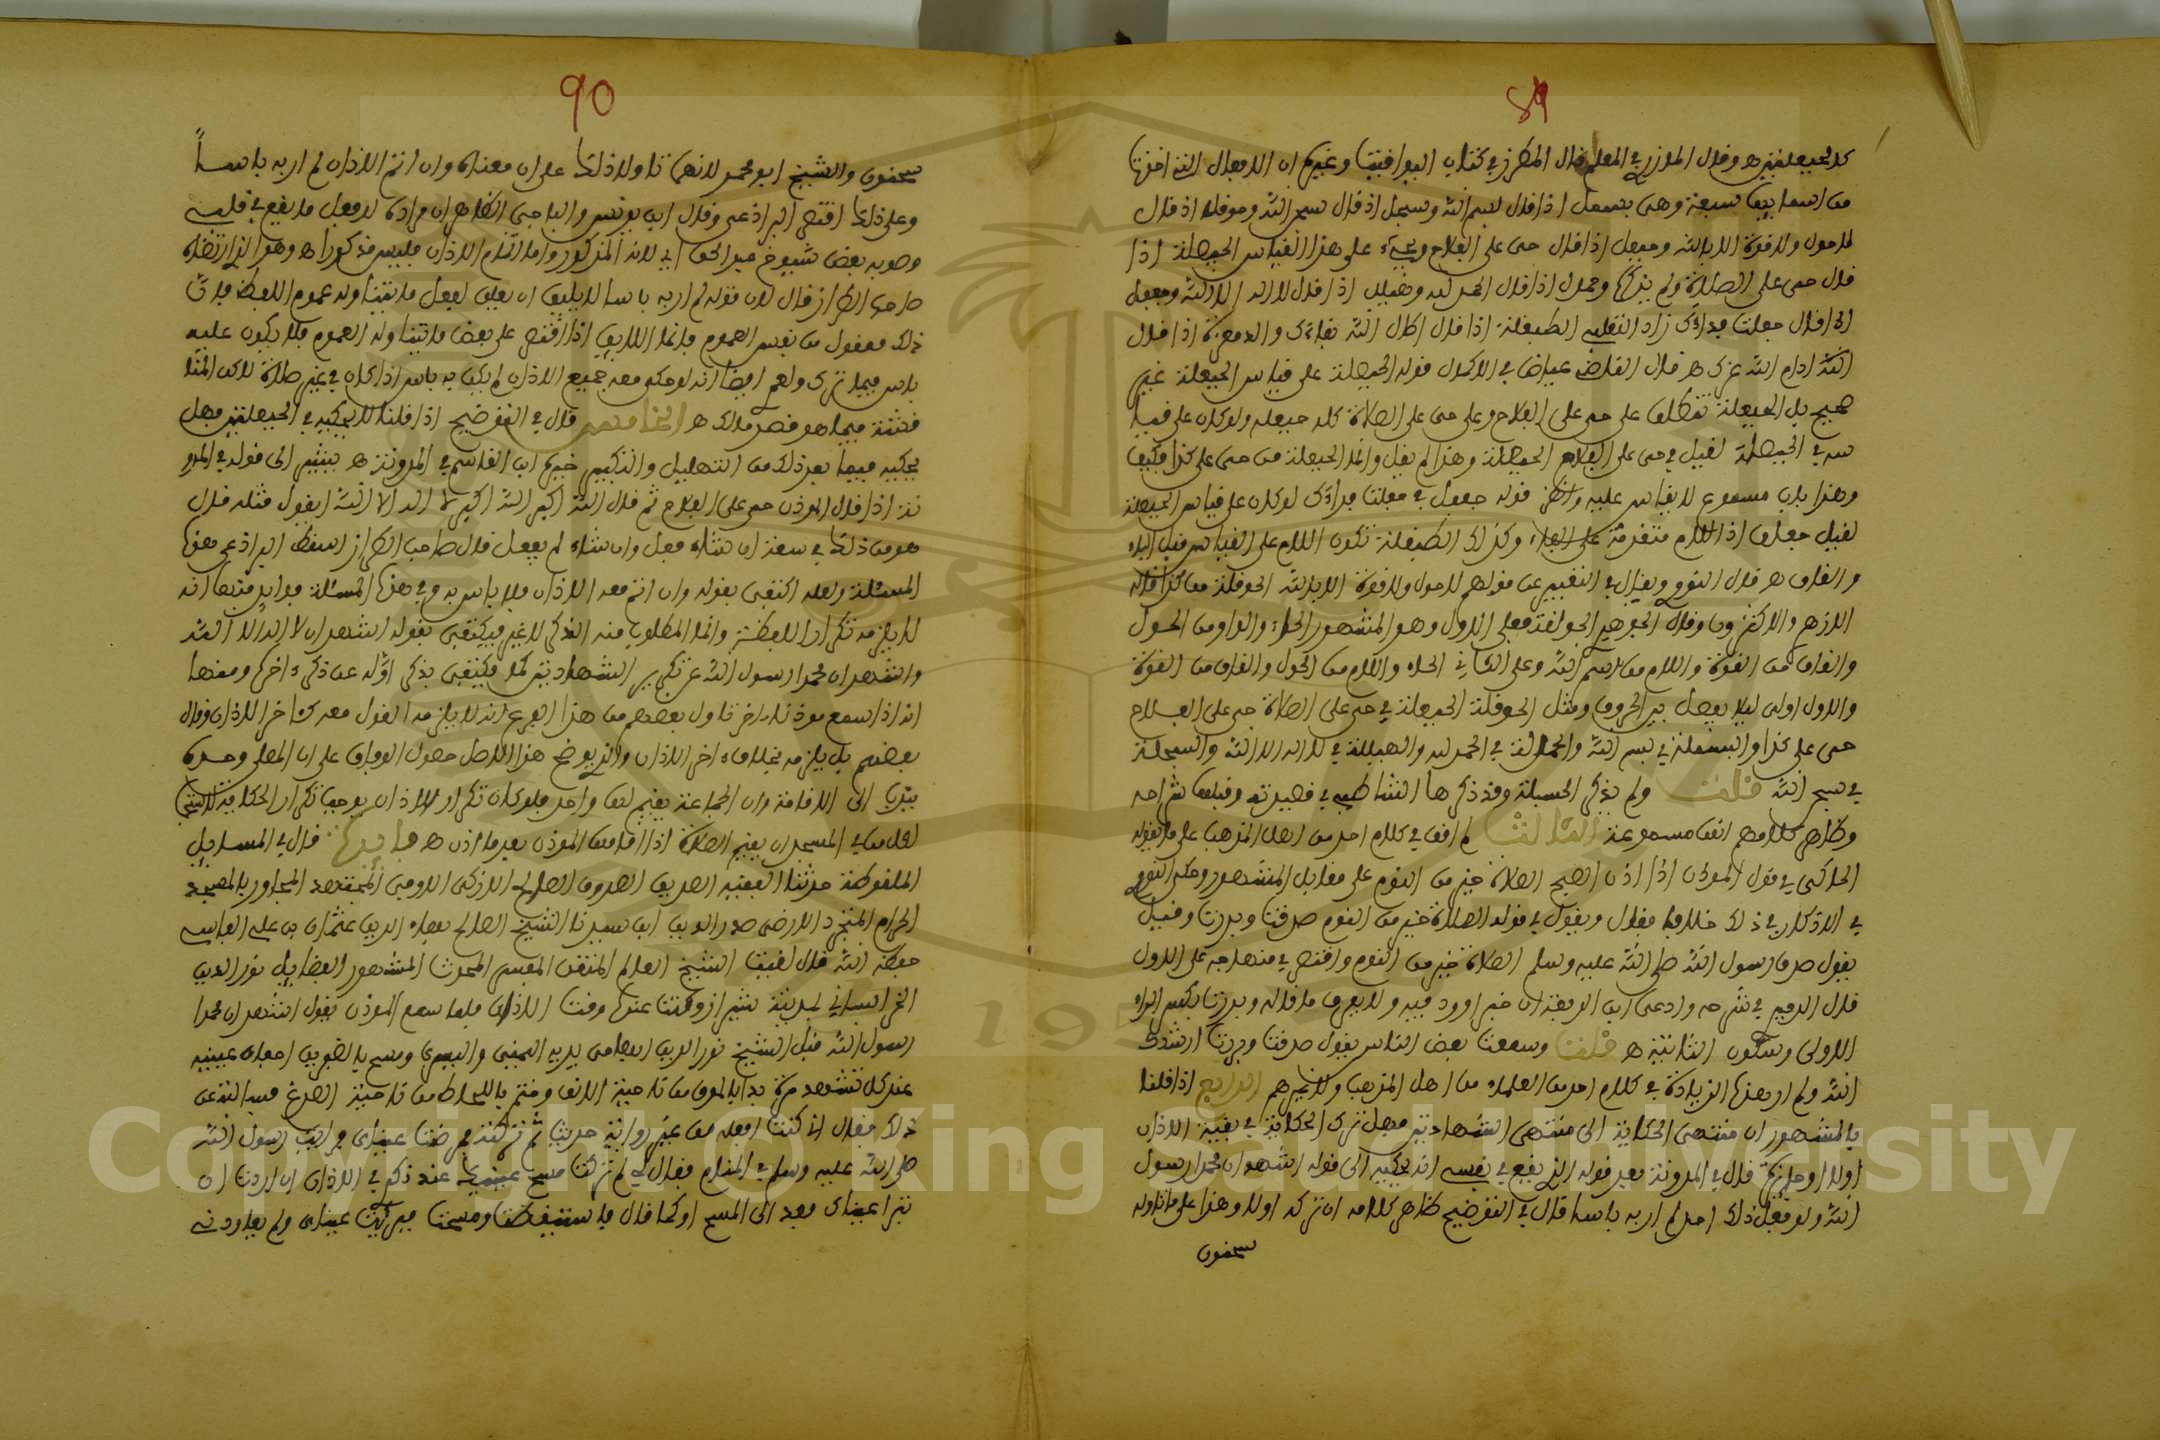 89
كالحيعلتين هـ وقال المازري في المعلم قال المطرز في كتاب اليواقيت وغيره ان الافعال التي اخذت
من اسمائها سبعة وهي بسمل اذا قال بسم الله وسبحل اذا قال سبحن الله وحوقل اذا قال
لا حول ولا قوة الا بالله وحيعل اذا قال حي على الفلاح ويجيء على هذا القياس الحيصلة اذا
قال حي على الصلاة ولم يذكرها وحمدل اذا قال الحمد لله وهيلل اذا قال لا اله الا الله وجعفل
اذا قال جعلت فداك زاد الثعلبي الطبقلة اذا قال اطال الله بقاءك والدمعزة اذا قال
الله ادام الله عزك هـ قال القاضي عياض في الاكمال قوله الحيصلة على قياس الحيعلة غير
صحيح بل الحيعلة تنطلق على حي على الفلاح وعلى حي على الصلاة كله حيعلة ولو كان على قيا
سه في الحيصلة لقيل في حي على الفلاح الحيفلة وهذا لم يقل وانما الحيعلة من حي على كذا فكيف
وهذا باب مسموع لا يقاس عليه وانظر قوله جعفل في جعلت فداك لو كان على قياس الحيعلة
لقيل جعلف اذ اللام متقدمة على الفاء وكذلك الطبقلة تكون اللام على القياس قبل الباء
والقاف هـ قال النووي ويقال في التعبير عن قولهم لا حول ولا قوة الا بالله الحوقلة هكذا قاله
الازهري والاكثرون وقال الجوهري الحولقة فعلى الاول وهو المشهور الحاء والواو من الحول
والقاف من القوة واللام من اسم الله وعلى الثاني الحاء واللام من الحول والقاف من القوة
والاول اولى ليلا يفصل بين الحروف ومثل الحوقلة الحيعلة في حي على الصلاة حي على الفلاح
حي على كذا والبسملة في بسم الله والحمدلة في الحمد لله والهيللة في لا اله الا الله والسبحلة
في سبحن الله قلت ولم يذكر الحسبلة وقد ذكرها الشاطبي في قصيدته وقبلها شراحه
وظاهر كلامهم انها مسموعة الثالث لم اقف في كلام احد من اهل المذهب على ما يقوله
الحاكي في قول الموذن اذا اذن الصبح الصلاة خير من النوم على مقابل المشهور وحكى النووي
في الاذكار في ذلك خلافا فقال ويقول في قوله الصلاة خير من النوم صدقت وبررت وقيل
يقول صدق رسول الله صلى الله عليه وسلم الصلاة خير من النوم واقتصر في منهاجه على الاول
قال الدميري في شرحه وادعى ابن الرفعة ان خبرا ورد فيه ولا يعرف ما قاله وبررت بكسر الراء
الاولى وسكون الثانية هـ قلت وسمعت بعض الناس يقول صدقت وبررت ارشدك
الله ولم ار هذه الزيادة في كلام احد من العلماء من اهل المذهب ولا غيرهم الرابع اذا قلنا
بالمشهور ان منتهى الحكاية الى منتهى الشهادتين فهل تترك الحكاية في بقية الاذان
اولا او جايزة قال في المدونة بعد قوله الذي يقع في نفسي انه يحكيه الى قوله اشهد ان محمدا رسول
الله ولو فعل ذلك احد لم ار به باسا قال في التوضيح ظاهر كلامه ان تركه اولا وهذا على ما تاوله
سحنون
90
سحنون والشيخ ابو محمد لانهما تاولا ذلك على ان معناه وان اتم الاذان لم ار به باسا
وعلى ذلك اقتصر البراذعي وقال ابن يونس والباجي الظاهر ان مراده لو فعل ما يقع في قلبي
وصوبه بعض شيوخ عبد الحق اي لانه المذكور واما اتمام الاذان فليس مذكورا هـ وهو الذي ارتضاه
صاحب الطراز قال لان قوله لم ار به باسا لا يليق ان يعلق بفعل ما يتناوله عموم اللفظ فان
ذلك معقول من نفس العموم وانما اللايق اذا اقتصر على بعض ما تناوله العموم فلا يكون عليه
باس فيما ترك ولعمري ايضا انه لو حكى معه جميع الاذان لم يكن به باس اذا كان في غير صلاة لاكن المنا
قشة فيما هو قصد مالك هـ الخامس قال في التوضيح اذا قلنا لا يحكيه في الحيعلتين فهل
يحكيه فيما بعد ذلك من التهليل والتكبير خيره ابن القاسم في المدونة هـ يشير الى قوله في المدو
نة اذا قال الموذن حي على الفلاح ثم قال الله اكبر الله اكبر لا اله الا الله ايقول مثله قال
هو من ذلك في سعة ان شاء فعل وان شاء لم يفعل قال صاحب الطراز اسقط البراذعي هذه
المسئلة ولعله اكتفى بقوله وان اتم معه الاذان فلا باس به وفي هذه المسئلة فوايد منها انه
لا يلزمه تكرار اللفظ وانما المطلوب منه الذكر لا غير فيكتفي بقوله اشهد ان لا اله الا الله
واشهد ان محمدا رسول الله عن تكرير الشهادتين كما يكتفي بذكر اوله عن ذكر اخره ومنها
انه اذا سمع موذنا اخر تاول بعضهم من هذا الفرع انه لا يلزمه القول معه كاخر الاذان وقال
بعضهم بل يلزمه بخلاف اخر الاذان والذي يوضح هذا الاصل حصول الوفاق على ان المصلي وحده
يندب الى الاقامة وان الجماعة يقيم لها واحد فلو كان تكرار الاذان يوجب تكرار الحكاية لاستحب
لكل من في المسجد ان يقيم الصلاة اذا اقامها الموذن بعد ما اذن هـ فايدة قال في المسايل
الملقوطة حدثنا الفقيه الصديق الصدوق الصالح الازكى الامين المجتهد المجاور بالمسجد
الحرام المتجرد الارضى صدر الدين ابن سيدنا الشيخ الصالح بهاء الدين عثمان بن علي الفاسي
حفظه الله قال لقيت الشيخ العالم المتقن المفسر المحدث المشهور الفضايل نور الدين
الخراساني بمدينة شيراز وكنت عنده وقت الاذان فلما سمع الموذن يقول اشهد ان محمدا
رسول الله قبل الشيخ نور الدين ابهامي يديه اليمنى واليسرى ومسح بالظفرين اجفان عينيه
عند كل تشهد مرة بدا بالموق من ناحية الانف وختم باللحاظ من ناحية الصدغ فسالته عن
ذلك فقال اني كنت افعله من غير رواية حديث ثم تركته فمرضت عيناي فرايت رسول الله
صلى الله عليه وسلم في المنام فقال لي لم تركت مسح عينيك عند ذكري في الاذان ان اردت ان
تبرا عيناك فعد الى المسح او كما قال فاستيقظت ومسحت فبرئت عيناي ولم يعاودني
Copyright © King Saud University
1957